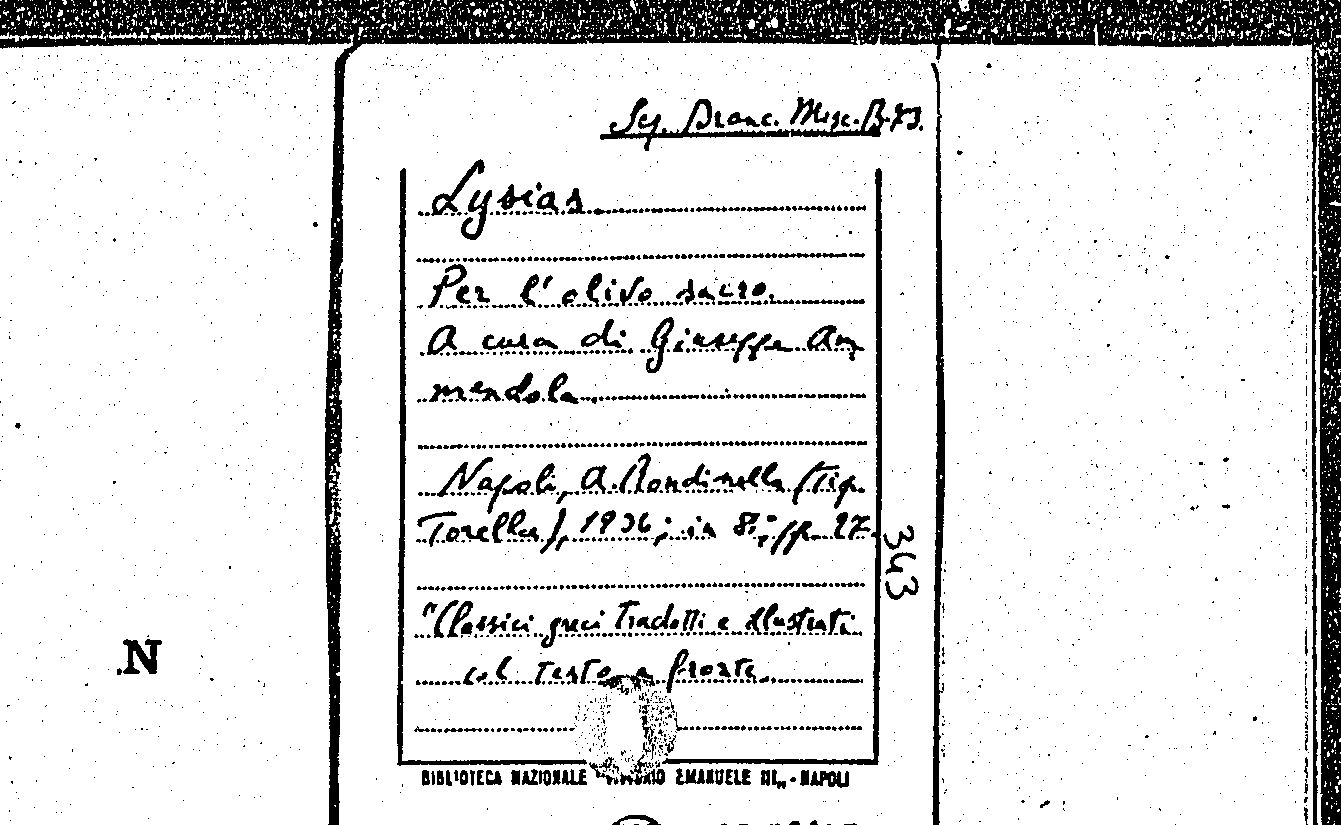 Sez. Branc. Misc. B. 73.
Lysias.
Per l'olivo sacro.
A cura di Giuseppe Am
mendola.
Napoli, A. Rondinella (Tip.
Torella), 1936; in 8°; pp. 27.
343
"Classici greci tradotti e illustrati
col testo a fronte.
N
BIBLIOTECA NAZIONALE "VITTORIO EMANUELE III„ - NAPOLI